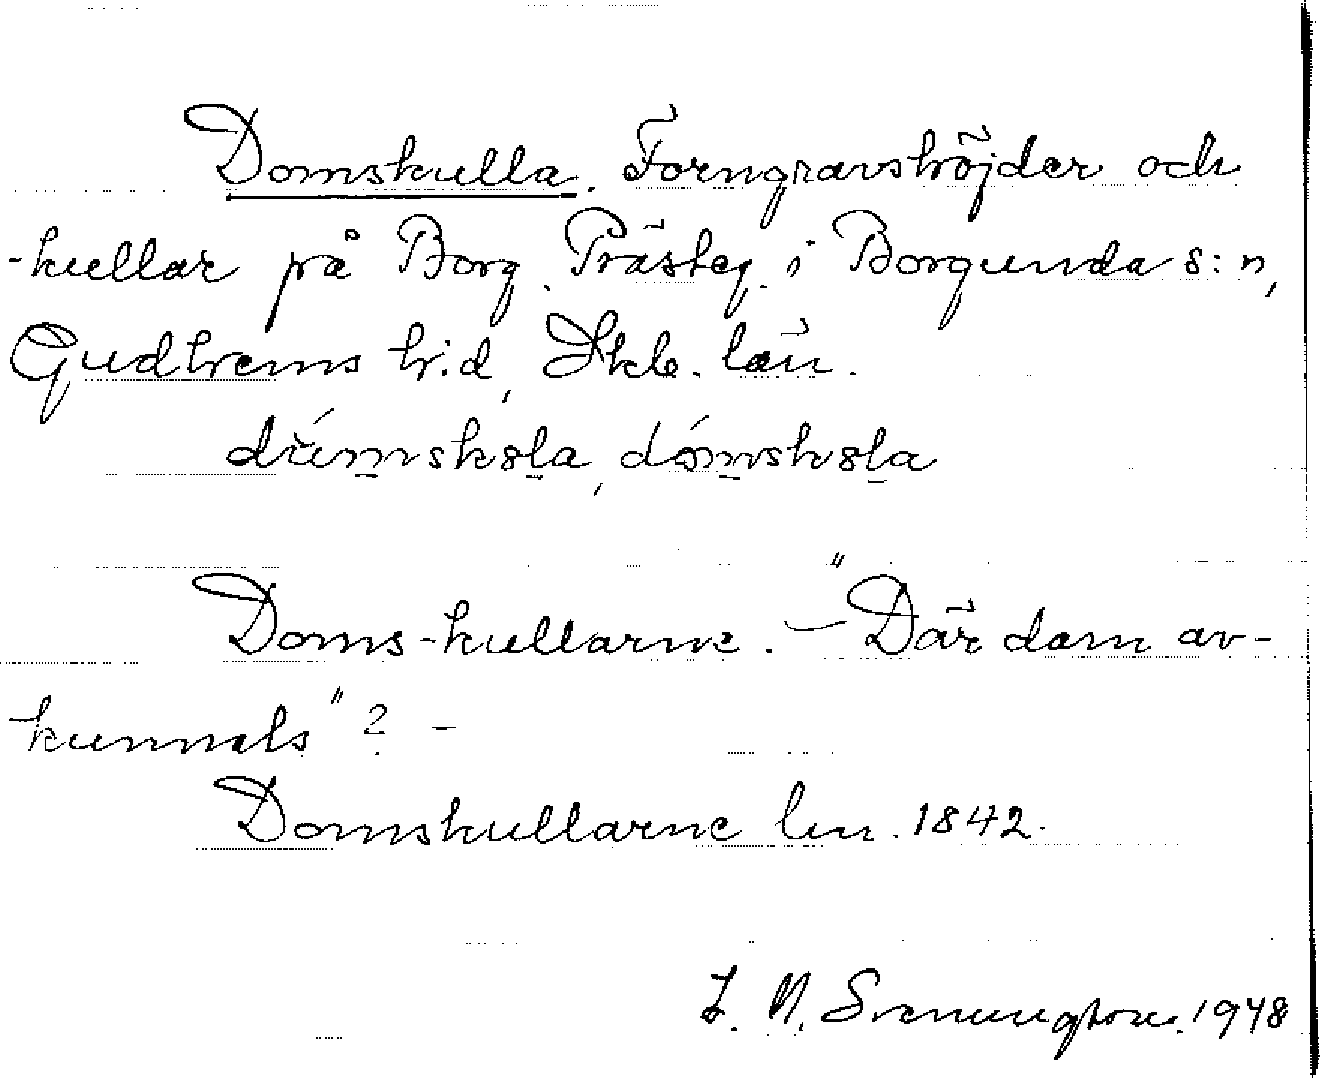 Domskulla. Forngravshöjder och
-kullar på Borg. Prästeg. i Borgunda s:n,
Gudhems h:d, Skb. län.
dúm̲sk8l̲a, dóm̲sk8l̲a
Doms-kullarne. – "Där dom av-
kunnats"? –
Domskullarne lm. 1842.
L. N. Svenungsson. 1948